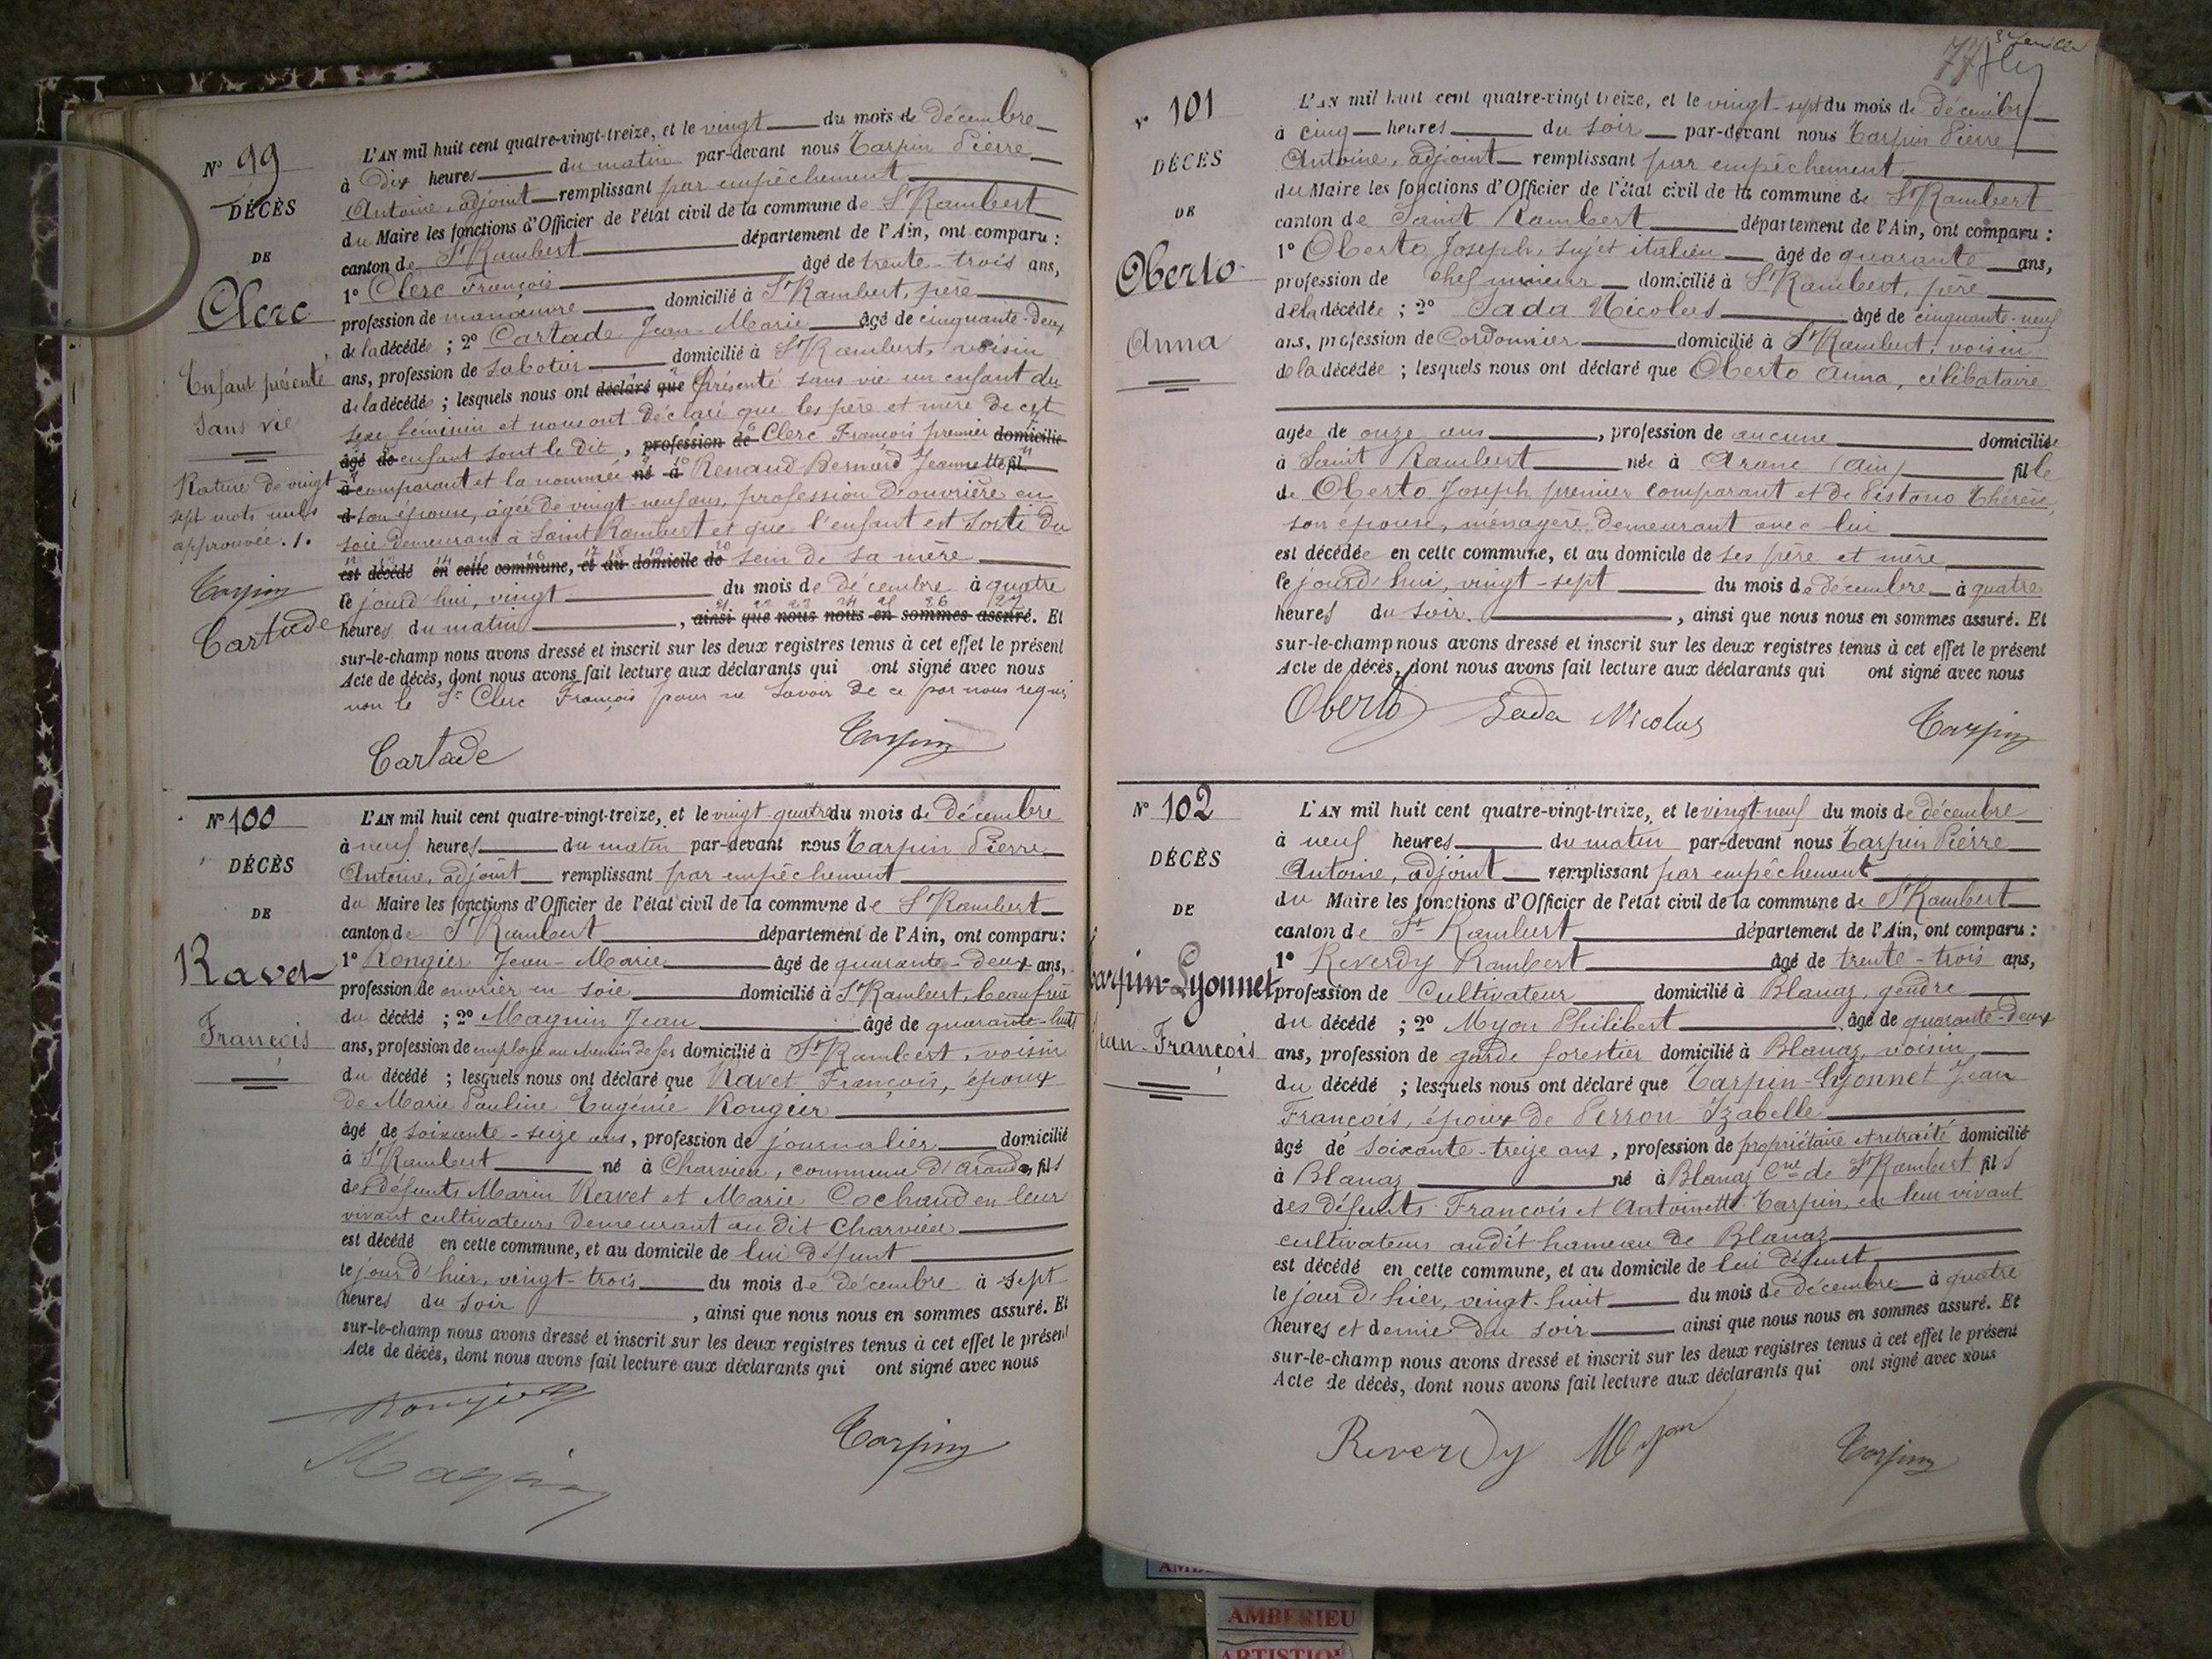 N° 99
DÉCÈS
DE
Clerc
Enfant présenté
Sans vie
Rature de vingt
sept mots nuls
approuvée. 1.
Tarpin
Cartade
L'AN mil huit cent quatre-vingt-treize, et le vingt du mois de décembre
à dix heures du matin par-devant nous Tarpin Pierre
Antoine, adjoint remplissant par empêchement
du Maire les fonctions d'Officier de l'état civil de la commune de St Rambert
canton de St Rambert département de l'Ain, ont comparu :
1° Clerc François âgé de trente-trois ans,
profession de manœuvre domicilié à St Rambert, père
de la décédée ; 2° Cartade Jean-Marie âgé de cinquante-deux
ans, profession de sabotier domicilié à St Rambert, voisin
de la décédée ; lesquels nous ont déclaré que présenté sans vie un enfant du
sexe féminin et nous ont déclaré que les père et mère de cet
âgé de enfant sont le dit, profession de Clerc François premier domicilié
à comparant et la nommée né à Renaud Bernard Jeannette fil
d son épouse, âgée de vingt-neuf ans, profession d'ouvrière en
soie demeurant à Saint Rambert et que l'enfant est sorti du
est décédé en cette commune, et au domicile de sein de sa mère
le jourd'hui, vingt du mois de décembre à quatre
heures du matin, ainsi que nous nous en sommes assuré. Et
sur-le-champ nous avons dressé et inscrit sur les deux registres tenus à cet effet le présent
Acte de décès, dont nous avons fait lecture aux déclarants qui ont signé avec nous
non le Sr Clerc François pour ne savoir de ce par nous requis
Cartade Tarpin
N° 100
DÉCÈS
DE
Ravet
François
L'AN mil huit cent quatre-vingt-treize, et le vingt-quatre du mois de décembre
à neuf heures du matin par-devant nous Tarpin Pierre
Antoine, adjoint remplissant par empêchement
du Maire les fonctions d'Officier de l'état civil de la commune de St Rambert
canton de St Rambert département de l'Ain, ont comparu :
1° Rougier Jean-Marie âgé de quarante-deux ans,
profession de ouvrier en soie domicilié à St Rambert, beau frère
du décédé ; 2° Magnin Jean âgé de quarante-huit
ans, profession de employé au chemin de fer domicilié à St Rambert, voisin
du décédé ; lesquels nous ont déclaré que Ravet François, époux
de Marie Pauline Eugénie Rougier
âgé de soixante-seize ans, profession de journalier domicilié
à St Rambert né à Charvieu, commune d'Arandas, fils
des défunts Marin Ravet et Marie Cochaud en leur
vivant cultivateurs demeurant au dit Charvieu
est décédé en cette commune, et au domicile de lui défunt
le jour d'hier, vingt-trois du mois de décembre à sept
heures du soir, ainsi que nous nous en sommes assuré. Et
sur-le-champ nous avons dressé et inscrit sur les deux registres tenus à cet effet le présent
Acte de décès, dont nous avons fait lecture aux déclarants qui ont signé avec nous
Rougier
Magnin Tarpin
77
N° 101
DÉCÈS
DE
Oberto
Anna
L'AN mil huit cent quatre-vingt treize, et le vingt-sept du mois de décembre
à cinq heures du soir par-devant nous Tarpin Pierre
Antoine, adjoint remplissant par empêchement
du Maire les fonctions d'Officier de l'état civil de la commune de St Rambert
canton de Saint Rambert département de l'Ain, ont comparu :
1° Oberto Joseph, sujet italien âgé de quarante ans,
profession de chef mineur domicilié à St Rambert, père
de la décédée ; 2° Sada Nicolas âgé de cinquante-neuf
ans, profession de Cordonnier domicilié à St Rambert, voisin
de la décédée ; lesquels nous ont déclaré que Oberto Anna, célibataire
agée de onze ans, profession de aucune domiciliée
à Saint Rambert née à Aranc (Ain) fille
de Oberto Joseph premier comparant et de Pistono Thérèse,
son épouse, ménagère demeurant avec lui
est décédée en cette commune, et au domicile de ses père et mère
le jourd'hui, vingt-sept du mois de décembre à quatre
heures du soir, ainsi que nous nous en sommes assuré. Et
sur-le-champ nous avons dressé et inscrit sur les deux registres tenus à cet effet le présent
Acte de décès, dont nous avons fait lecture aux déclarants qui ont signé avec nous
Oberto Sada Nicolas Tarpin
N° 102
DÉCÈS
DE
Tarpin-Lyonnet
Jean-François
L'AN mil huit cent quatre-vingt-treize, et le vingt-neuf du mois de décembre
à neuf heures du matin par-devant nous Tarpin Pierre
Antoine, adjoint remplissant par empêchement
du Maire les fonctions d'Officier de l'état civil de la commune de St Rambert
canton de St Rambert département de l'Ain, ont comparu :
1° Reverdy Rambert âgé de trente-trois ans,
profession de Cultivateur domicilié à Blanaz, gendre
du décédé ; 2° Myon Philibert âgé de quarante-deux
ans, profession de garde forestier domicilié à Blanaz, voisin
du décédé ; lesquels nous ont déclaré que Tarpin-Lyonnet Jean
François, époux de Perron Izabelle
âgé de soixante-treize ans, profession de propriétaire et retraité domicilié
à Blanaz né à Blanaz Cne de St Rambert fils
des défunts François et Antoinette Tarpin, en leur vivant
cultivateurs audit hameau de Blanaz
est décédé en cette commune, et au domicile de lui défunt
le jour d'hier, vingt-huit du mois de décembre à quatre
heures et demie du soir ainsi que nous nous en sommes assuré. Et
sur-le-champ nous avons dressé et inscrit sur les deux registres tenus à cet effet le présent
Acte de décès, dont nous avons fait lecture aux déclarants qui ont signé avec nous
Reverdy Myon Tarpin
AMBERIEU